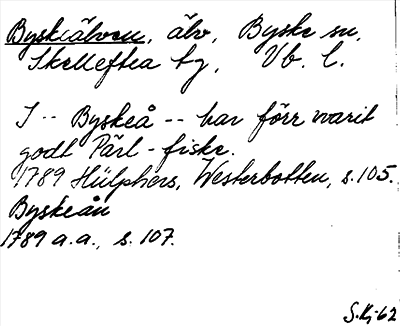 Byskeälven, älv, Byske sn,
Skellefteå tg, Vb. l.
I -- Byskeå -- har förr warit
godt Pärl-fiske.
1789 Hülphers, Westerbotten, s. 105.
Byskeån
1789 a.a., s. 107.
S.Kj-62